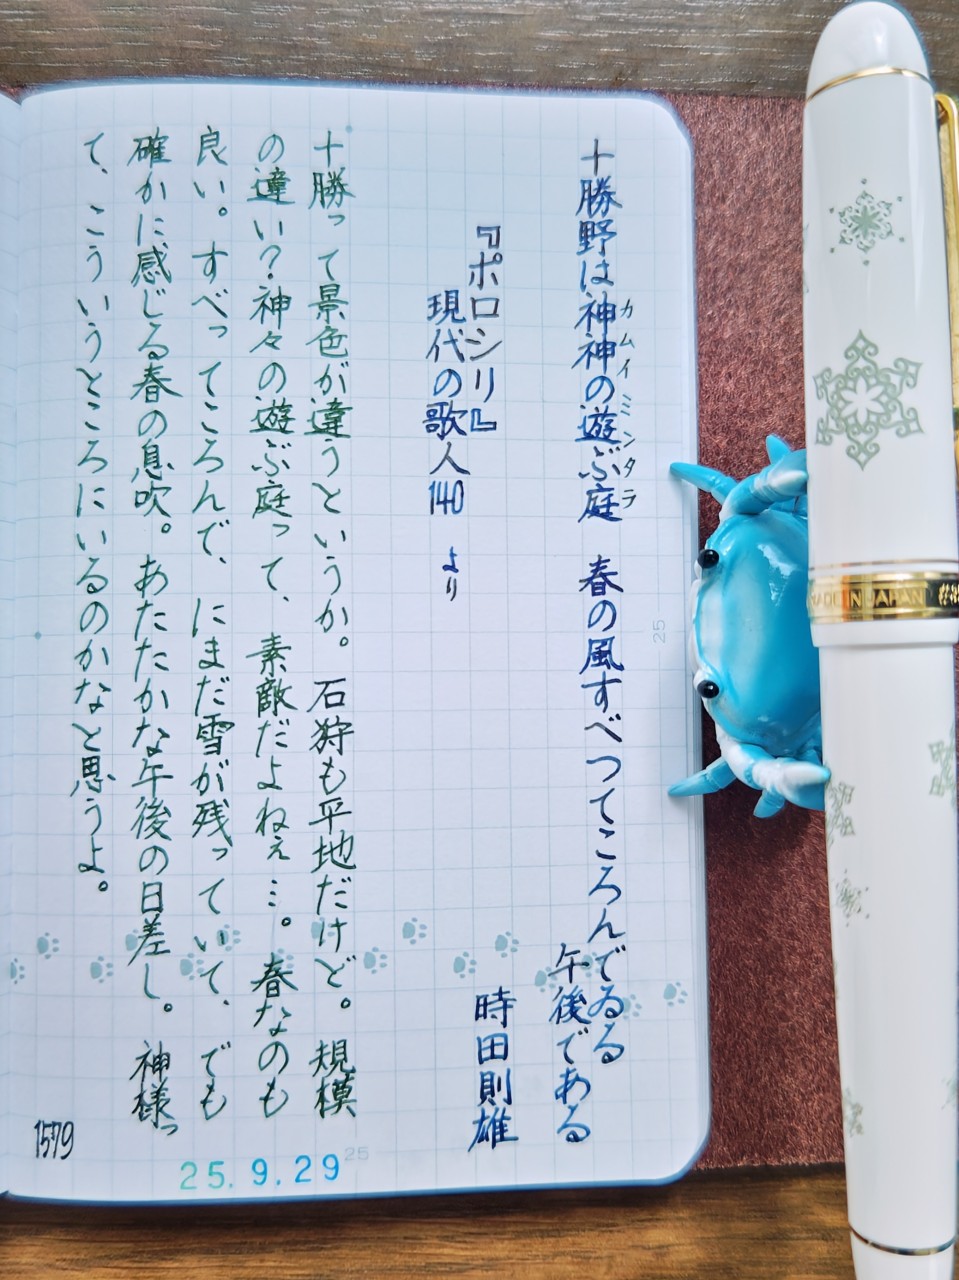 十勝野は神神の遊ぶ庭　春の風すべつてころんでゐる
カムイミンタラ
午後である
時田則雄
『ポロシリ』
現代の歌人140　より
十勝って景色が違うというか。石狩も平地だけど。規模
の違い？神々の遊ぶ庭って、素敵だよねぇ…。春なのも
良い。すべってころんで、にまだ雪が残っていて、でも
確かに感じる春の息吹。あたたかな午後の日差し。神様っ
て、こういうところにいるのかなと思うよ。
1579
25.9.29
25
25
MADE IN JAPAN